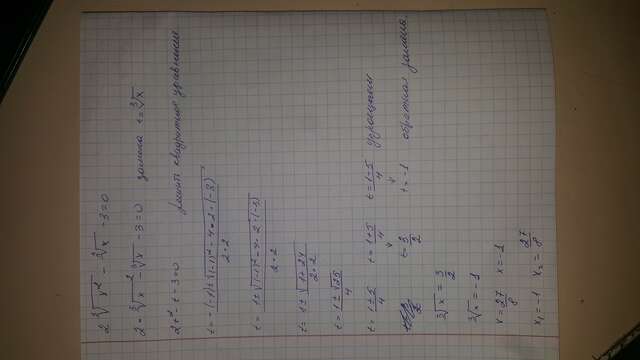 2 ∛x² - ∛x - 3 = 0
2 · ∛x² - ∛x - 3 = 0 замена t = ∛x
2t² - t - 3 = 0 решить квадратное уравнение
t = -(-1) ± √((-1)² - 4 · 2 · (-3)) / 2 · 2
t = 1 ± √((-1)² - 4 · 2 · (-3)) / 2 · 2
t = 1 ± √(1 + 24) / 2 · 2
t = 1 ± √25 / 4
t = 1 ± 5 / 4 t = 1 + 5 / 4 t = 1 - 5 / 4 упрощаем
t = 3/2 t = -1 обратная замена.
∛x = 3/2
∛x = -1
x = 27/8 x = -1
x₁ = -1 x₂ = 27/8